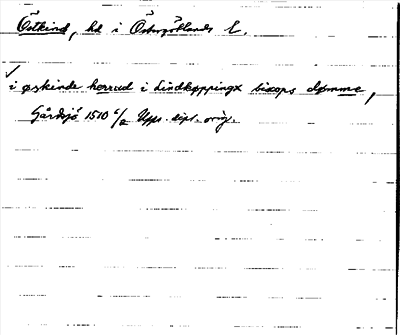 Östkind, hd i Östergötlands l.
✓
i øskinde herrad i Lindkøppingx biscops dømme,
Gårdsjö 1510 6/2 Upps. dipl. orig.